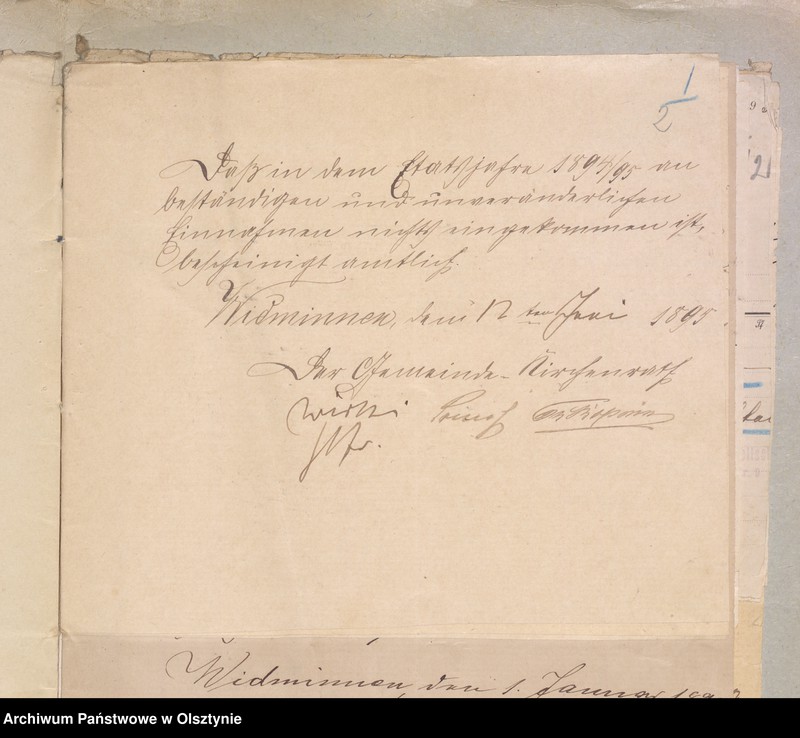 1
2
Daß in dem Etatsjahre 1894/95 an
beständigen und unveränderlichen
Einnahmen nichts eingekommen ist,
bescheinigt amtlich.
Widminnen, den 12ten Juni 1895
Der Gemeinde-Kirchenrath
Pfr.
2
Widminnen, den 1. Januar 189
Archiwum Państwowe w Olsztynie